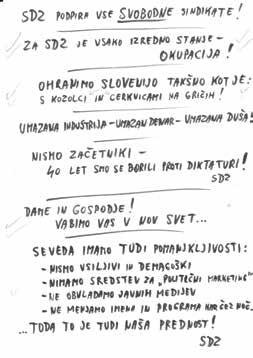 SDZ PODPIRA VSE SVOBODNE SINDIKATE!
ZA SDZ JE VSAKO IZREDNO STANJE -
OKUPACIJA!
OHRANIMO SLOVENIJO TAKŠNO KOT JE:
S KOZOLCI IN CERKVICAMI NA GRIČIH!
UMAZANA INDUSTRIJA - UMAZAN DENAR - UMAZANA DUŠA!
NISMO ZAČETNIKI -
40 LET SMO SE BORILI PROTI DIKTATURI!
SDZ
DAME IN GOSPODJE!
VABIMO VAS V NOV SVET...
SEVEDA IMAMO TUDI POMANJKLJIVOSTI:
- NISMO VSILJIVI IN DEMAGOŠKI
- NIMAMO SREDSTEV ZA „POLITIČNI MARKETING"
- NE OBVLADAMO JAVNIH MEDIJEV
- NE MENJAMO IMENA IN PROGRAMA KAR ČEZ NOČ.
...TODA TO JE TUDI NAŠA PREDNOST!
SDZ